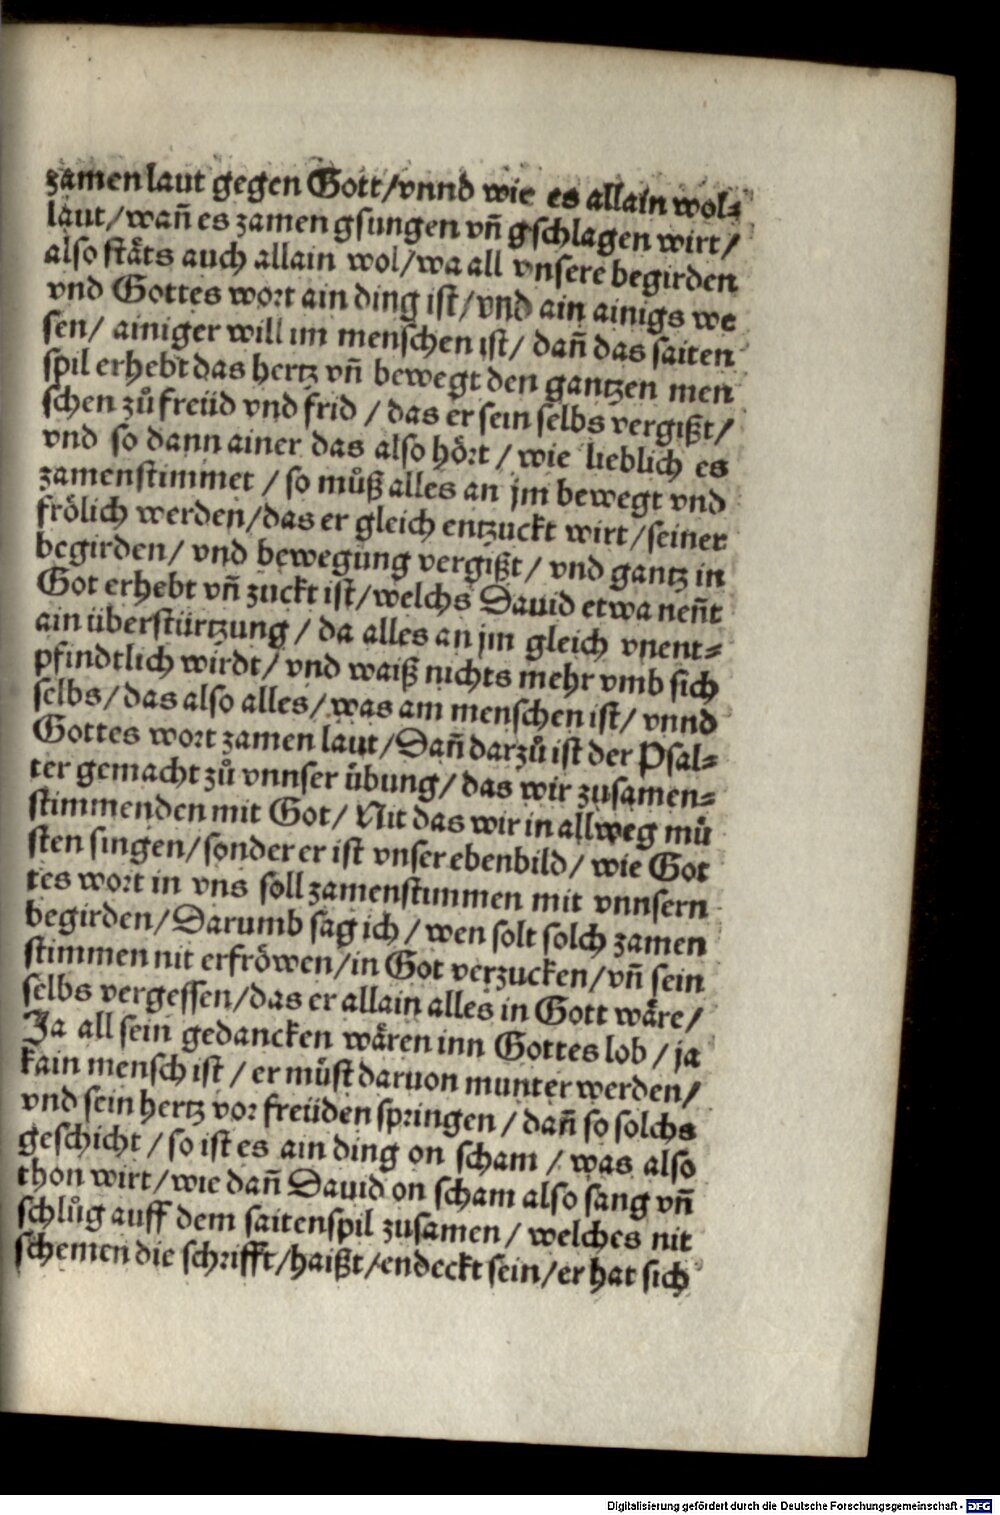 zamen laut gegen Gott/vnnd wie es allain wol⸗
laut/wañ es zamen gsungen vñ gschlagen wirt/
also stäts auch allain wol/wa all vnsere begirden
vnd Gottes wort ain ding ist/vnd ain ainigs we
sen/ ainiger will im menschen ist/ dañ das saiten
spil erhebt das hertz vñ bewegt den gantzen men
schen zů freüd vnd frid / das er sein selbs vergißt/
vnd so dann ainer das also hört / wie lieblich es
zamenstimmet / so můß alles an jm bewegt vnd
frölich werden/das er gleich entzuckt wirt/seiner
begirden/ vnd bewegung vergißt/ vnd gantz in
Got erhebt vñ zuckt ist/welchs Dauid etwa neñt
ain überstürtzung / da alles an jm gleich vnent⸗
pfindtlich wirdt/ vnd waiß nichts mehr vmb sich
selbs/das also alles/was am menschen ist/ vnnd
Gottes wort zamen laut/Dañ darzů ist der Psal⸗
ter gemacht zů vnnser übung/das wir zusamen⸗
stimmenden mit Got/ Nit das wir in allweg mü
sten singen/sonder er ist vnser ebenbild/ wie Got
tes wort in vns soll zamenstimmen mit vnnsern
begirden/Darumb sag ich / wen solt solch zamen
stimmen nit erfröwen/in Got verzucken/vñ sein
selbs vergessen/das er allain alles in Gott wäre/
Ja all sein gedancken wären inn Gottes lob / ja
kain mensch ist / er müst daruon munter werden/
vnd sein hertz vor freüden springen / dañ so solchs
geschicht / so ist es ain ding on scham / was also
thon wirt/wie dañ Dauid on scham also sang vñ
schlůg auff dem saitenspil zusamen / welches nit
schemen die schrifft/haißt/endeckt sein/er hat sich
Digitalisierung gefördert durch die Deutsche Forschungsgemeinschaft - DFG